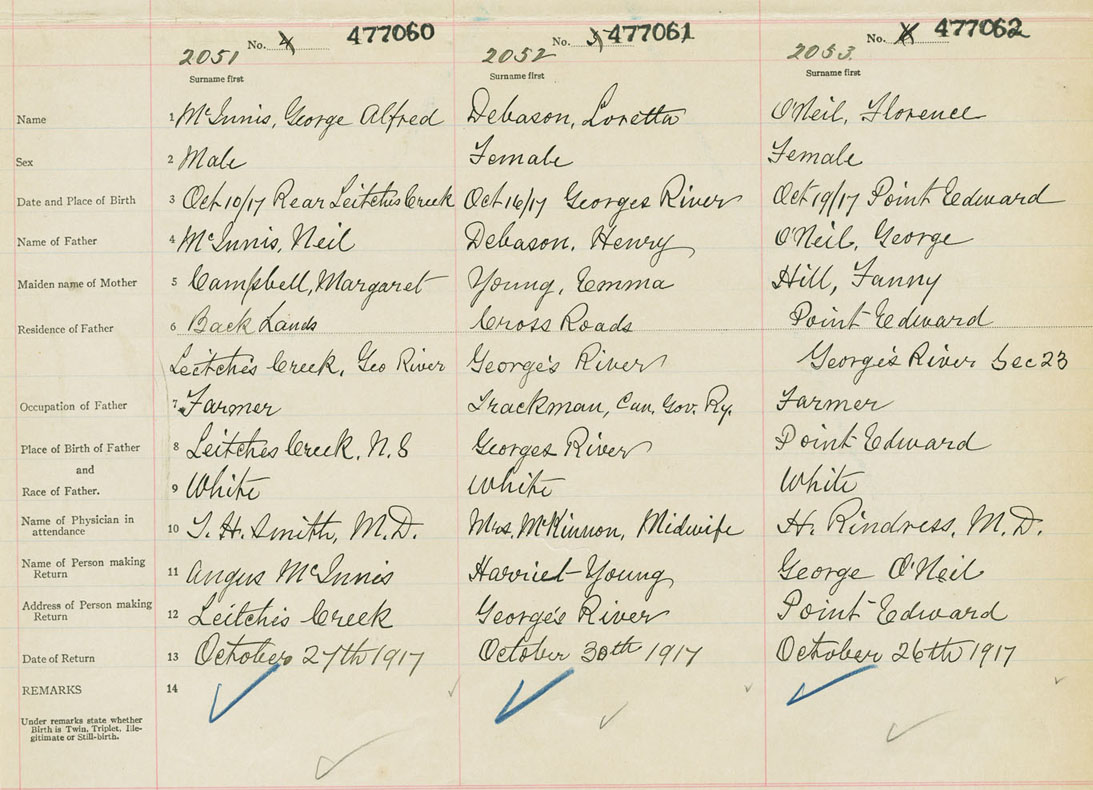 No. 4 477060 No. 5 477061 No. 6 477062
2051 2052 2053
Surname first Surname first Surname first
Name 1 McInnis, George Alfred Debason, Loretta O'Neil, Florence
Sex 2 Male Female Female
Date and Place of Birth 3 Oct 10/17 Rear Leitches Creek Oct 16/17 Georges River Oct 19/17 Point Edward
Name of Father 4 McInnis, Neil Debason, Henry O'Neil, George
Maiden name of Mother 5 Campbell, Margaret Young, Emma Hill, Fanny
Residence of Father 6 Back Lands Cross Roads Point Edward
Leitche's Creek, Geo River George's River George's River Sec 23
Occupation of Father 7 Farmer Trackman, Can. Gov. Ry. Farmer
Place of Birth of Father 8 Leitches Creek, N.S Georges River Point Edward
and
Race of Father. 9 White White White
Name of Physician in
attendance 10 T. H. Smith, M.D. Mrs. McKinnon, Midwife H. Rindress, M.D.
Name of Person making
Return 11 Angus McInnis Harriet Young George O'Neil
Address of Person making
Return 12 Leitchis Creek George's River Point Edward
Date of Return 13 October 27th 1917 October 30th 1917 October 26th 1917
REMARKS 14
Under remarks state whether
Birth is Twin, Triplet, Ille-
gitimate or Still-birth.